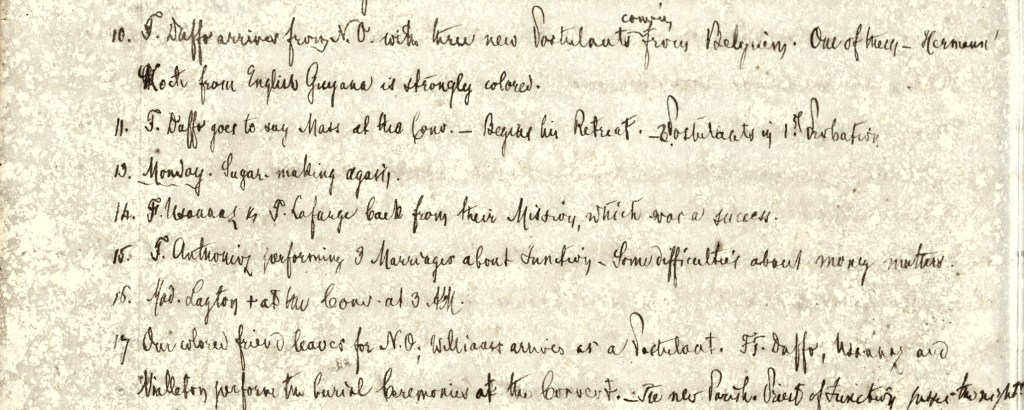 coming
10. F. Daffo arrives from N.O. with three new Postulants from Belgium. One of them – Hermann
Koch from English Guyana is strongly colored.
11. F. Daffo goes to say Mass at the Conv. – Begins his Retreat. – 2 Postulants in 1st Probation
13. Monday. Sugar-making again.
14. F. Usannaz & F. Lafarge back from their Mission, which was a success.
15. F. Anthonioz performing 3 Marriages about Junction – Some difficulties about money matters.
16. Mad. Layton + at the Conv. at 3 AM.
17 Our colored friend leaves for N.O; Williams arrives as a Postulant. FF. Daffo, Usannaz and
perform the burial Ceremonies at the Convent. – The new Parish Priest of Junction passes the night